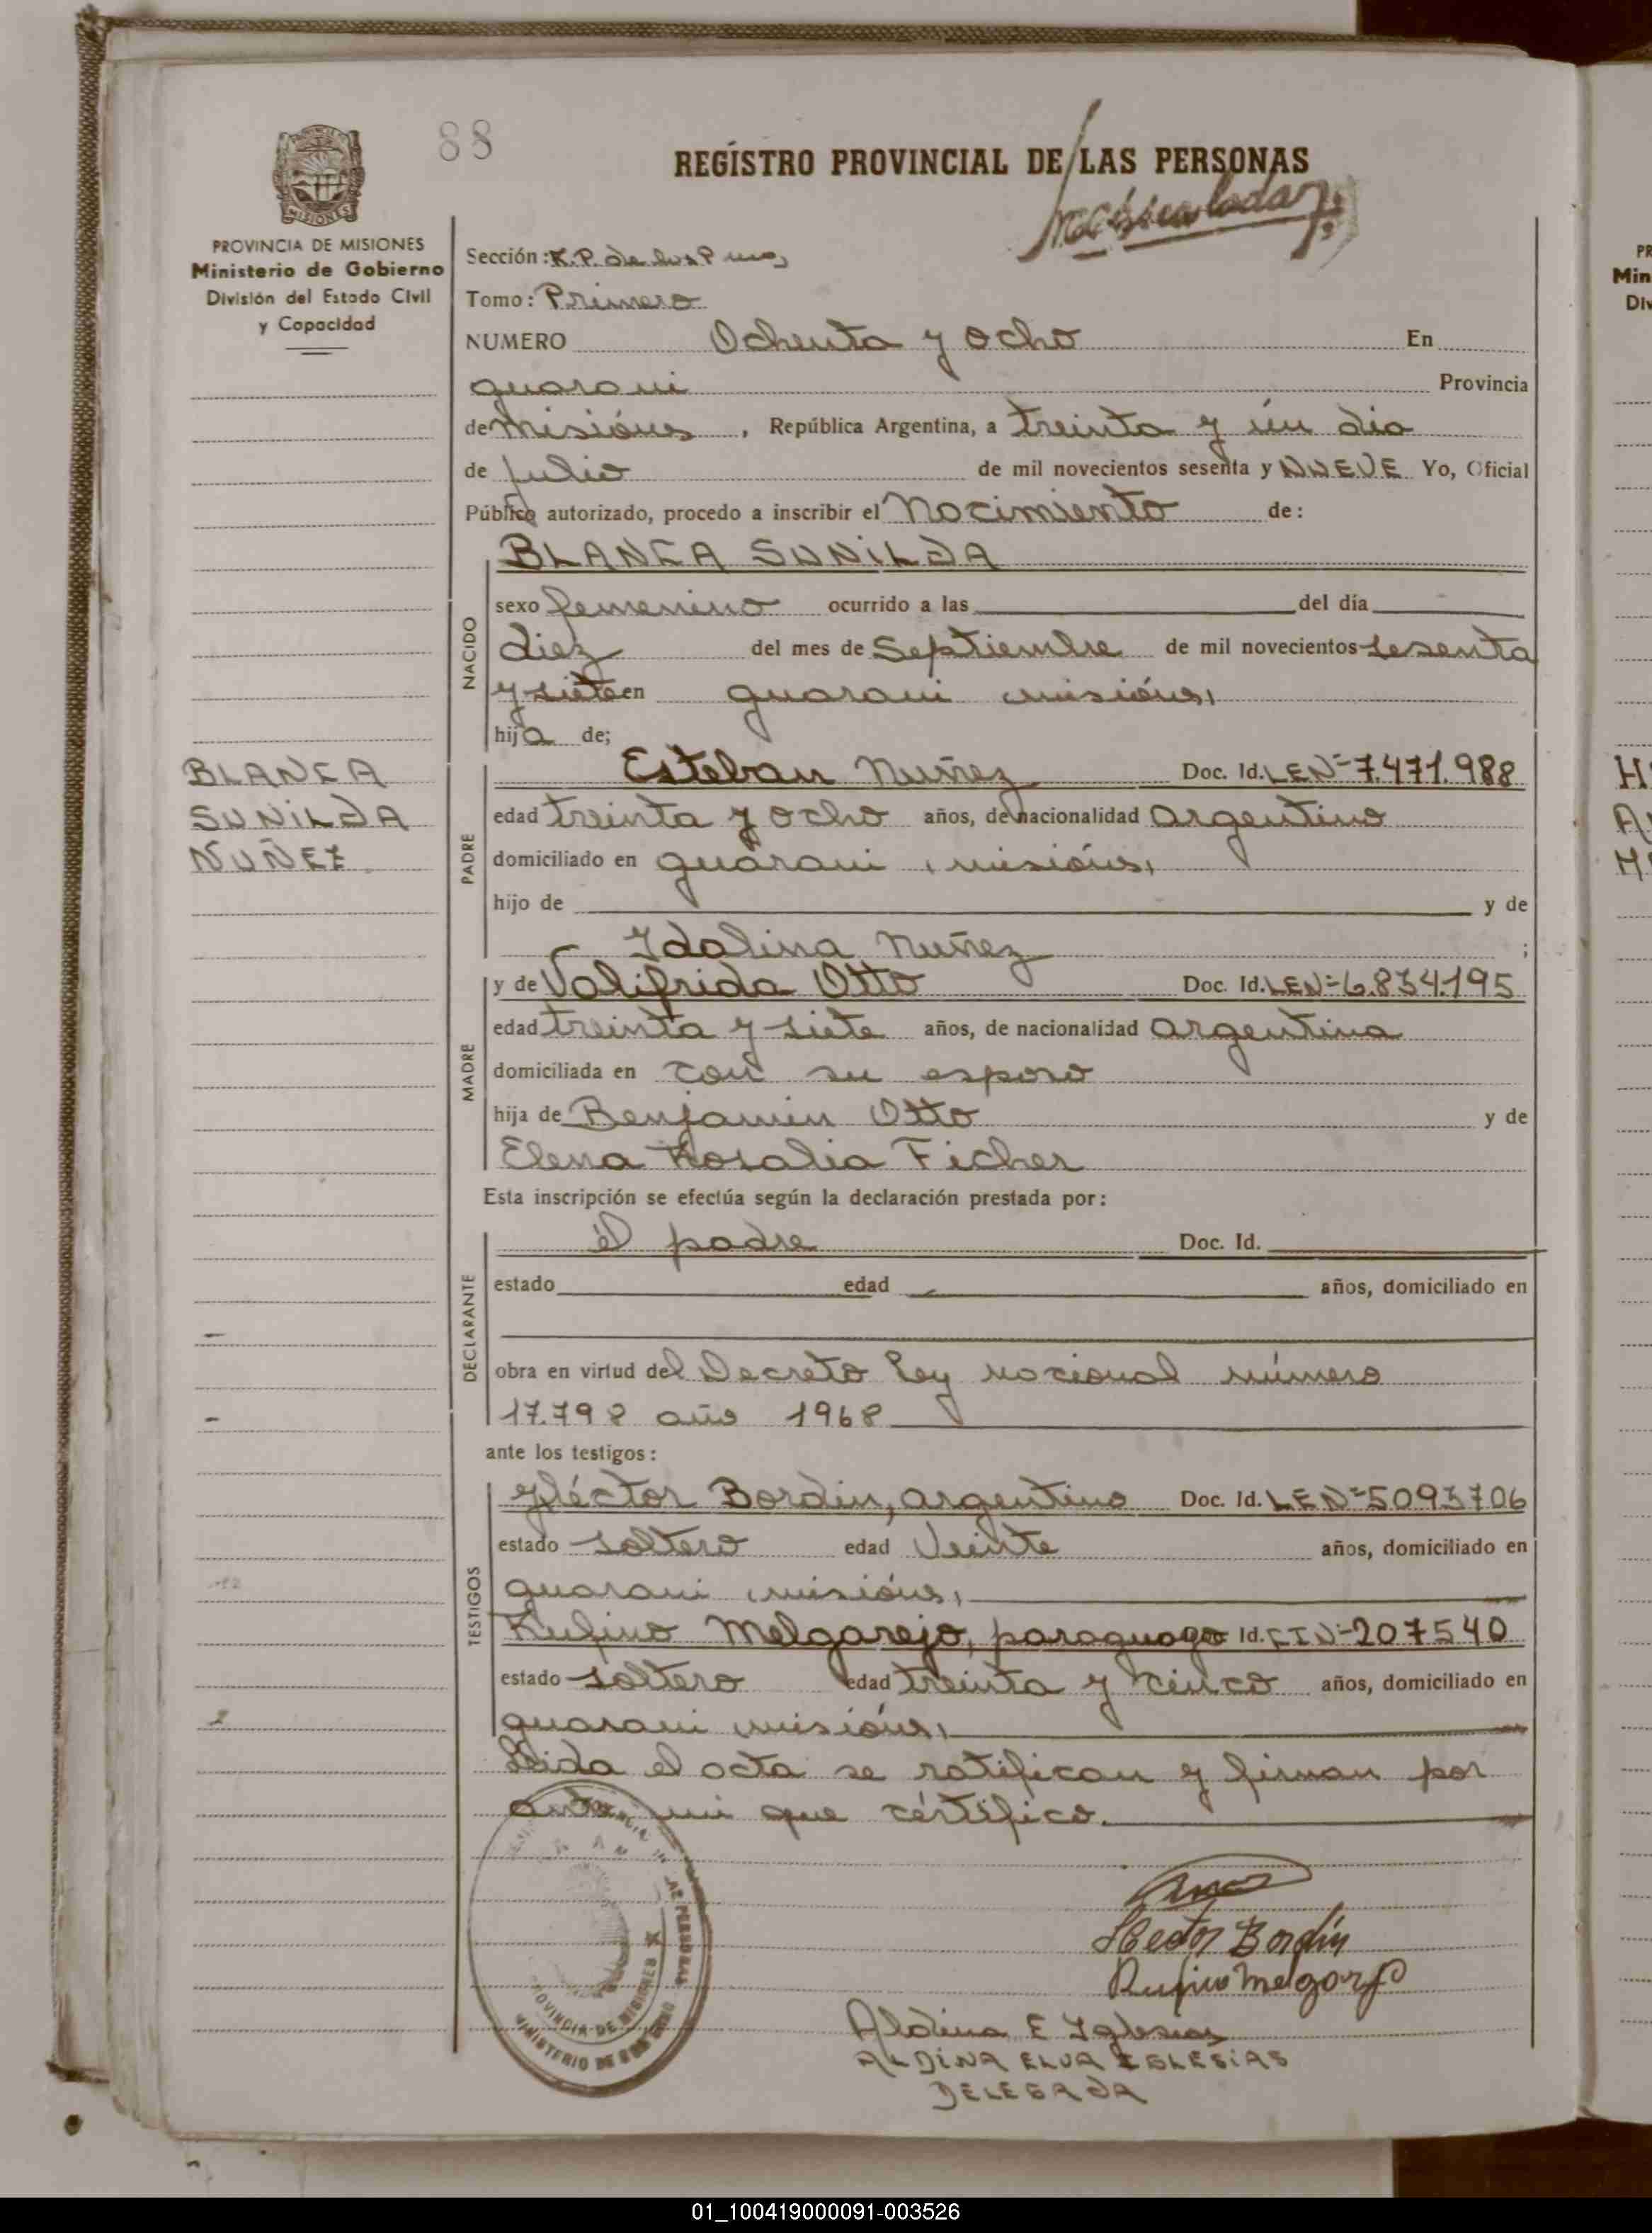 88
REGISTRO PROVINCIAL DE LAS PERSONAS
PROVINCIA DE MISIONES
Ministerio de Gobierno
División del Estado Civil
y Capacidad
Sección: R.P. de las P
Tomo: Primero
NUMERO Ochenta y ocho En
guarani Provincia
de misiónes, República Argentina, a treinta y ún dia
de julio de mil novecientos sesenta y NUEVE Yo, Oficial
Público autorizado, procedo a inscribir el Nacimiento de:
BLANCA SUNILDA
NACIDO
sexo femenino ocurrido a las del día
diez del mes de Septiembre de mil novecientos sesenta
y siete en guarani misiónes,
hija de;
BLANCA
SUNILDA
NUÑEZ
PADRE
Esteban Nuñez Doc. Id. LEN=7.471.988
edad treinta y ocho años, de nacionalidad argentino
domiciliado en guarani, misiónes,
hijo de y de
Idalina Nuñez ;
MADRE
y de Valifrida Otto Doc. Id. LEN=6.834.195
edad treinta y siete años, de nacionalidad argentina
domiciliada en con su esposo
hija de Benjamin Otto y de
Elena Rosalia Ficher
Esta inscripción se efectúa según la declaración prestada por:
DECLARANTE
él padre Doc. Id.
estado edad años, domiciliado en
obra en virtud del Decreto ley nacional número
17.798 año 1968
ante los testigos:
TESTIGOS
Héctor Bordin, argentino Doc. Id. LEN=5093706
estado soltero edad Veinte años, domiciliado en
guarani misiónes,
Rufino Melgarejo, paraguayo Id. CIN=207540
estado soltero edad treinta y cinco años, domiciliado en
guarani misiónes,
Leida el acta se ratifican y firman por
ante mi que cértifico.
PROVINCIA DE MISIONES
MINISTERIO DE GOBIERNO
DE LAS PERSONAS
Hector Bordín
Rufino Melgarejo
Aldina E Iglesias
ALDINA ELVA IGLESIAS
DELEGADA
01_100419000091-003526